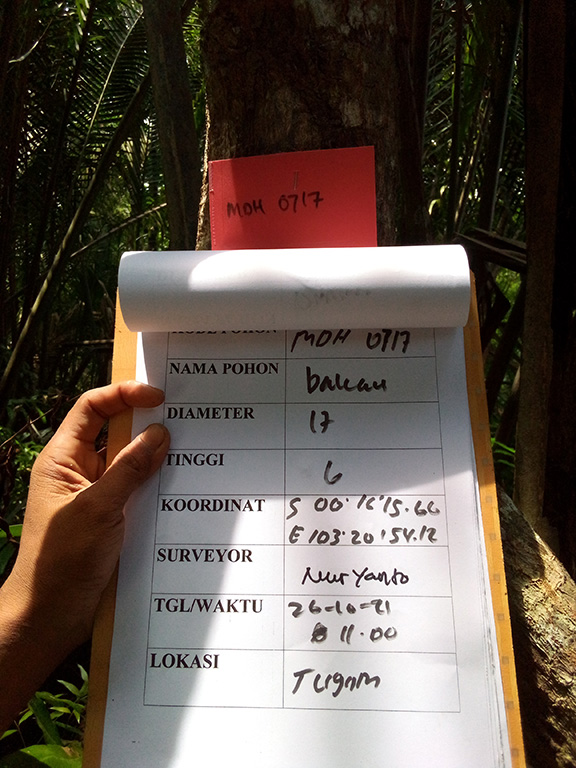 MDH 0717
KODE POHON MDH 0717
NAMA POHON bakau
DIAMETER 17
TINGGI 6
KOORDINAT S 00° 16' 15.66
E 103° 20' 54.12
SURVEYOR Nur Yanto
TGL/WAKTU 26-10-21
11.00
LOKASI